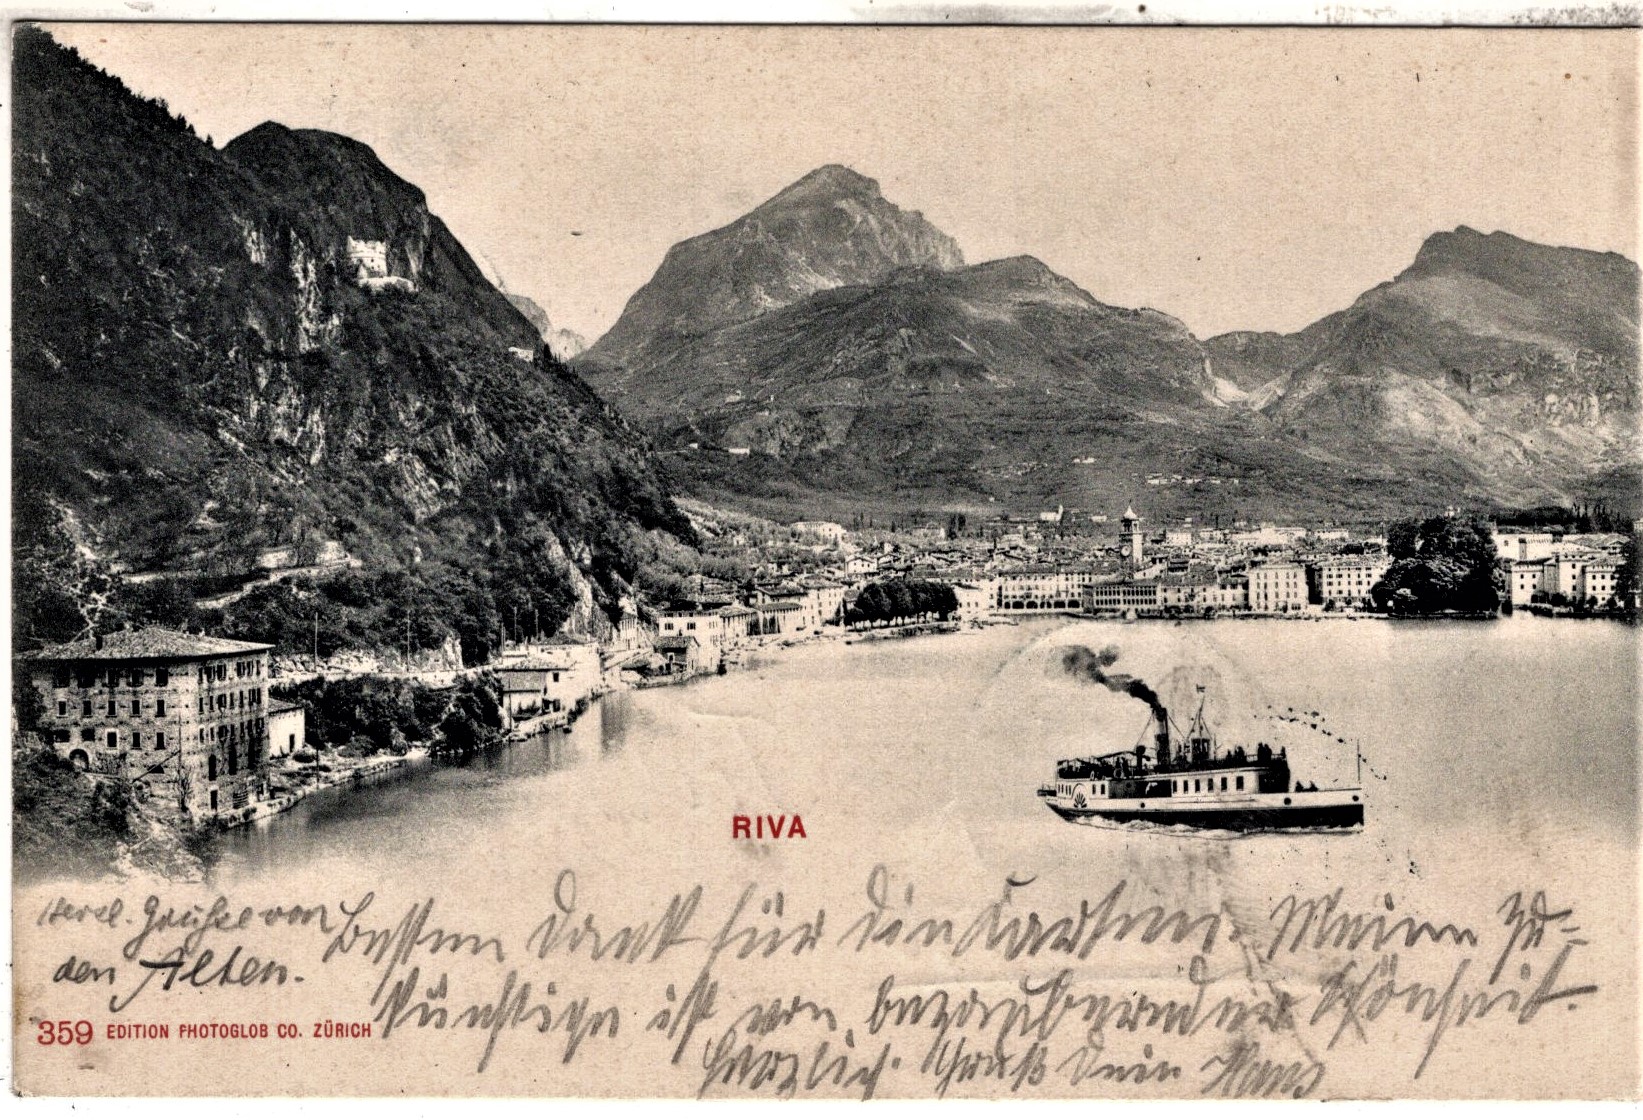 RIVA
Herzl. Grüße von
den Alten.
Besten Dank für die Karten. Meine Zu-
künftige ist von bezaubernder Schönheit.
Herzlich. Gruß Dein Hans
359 EDITION PHOTOGLOB CO. ZÜRICH